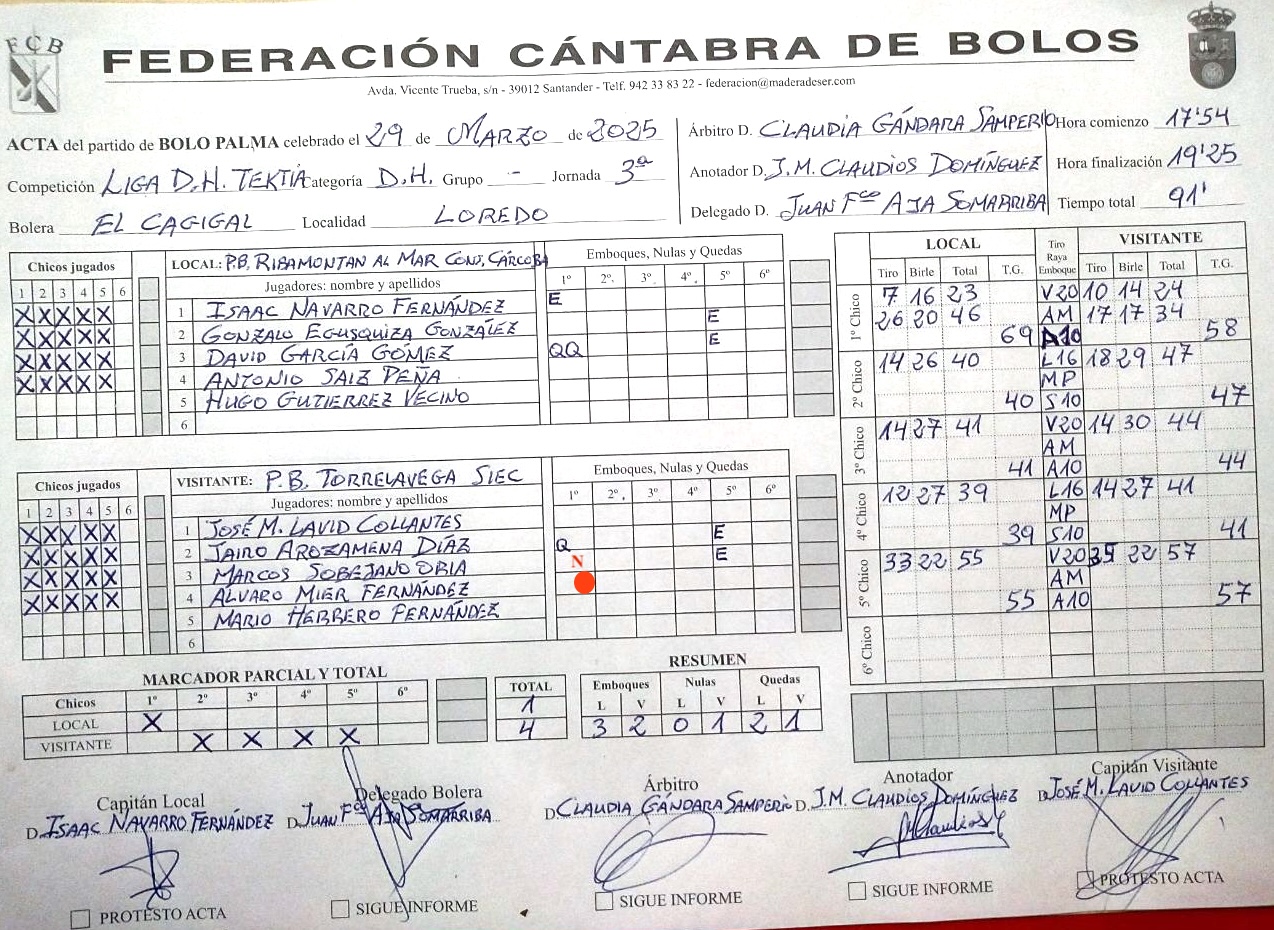 FCB
FEDERACIÓN CÁNTABRA DE BOLOS
Avda. Vicente Trueba, s/n - 39012 Santander - Telf. 942 33 83 22 - federacion@maderadeser.com
ACTA del partido de BOLO PALMA celebrado el 29 de MARZO de 2025
Competición LIGA D.H. TEKTIA Categoría D.H. Grupo - Jornada 3ª
Bolera EL CAGIGAL Localidad LOREDO
Árbitro D. CLAUDIA GÁNDARA SAMPERIO Hora comienzo 17'54
Anotador D. J.M. CLAUDIOS DOMÍNGUEZ Hora finalización 19'25
Delegado D. JUAN Fco AJA SOMARRIBA Tiempo total 91'
Chicos jugados LOCAL: P.B. RIBAMONTAN AL MAR CONS. CÁRCOBA Emboques, Nulas y Quedas
1 2 3 4 5 6 Jugadores: nombre y apellidos 1º 2º 3º 4º 5º 6º
X X X X X 1 ISAAC NAVARRO FERNÁNDEZ E
X X X X X 2 GONZALO EGUSQUIZA GONZALEZ E
X X X X X 3 DAVID GARCÍA GÓMEZ QQ E
X X X X X 4 ANTONIO SAIZ PEÑA
5 HUGO GUTIERREZ VECINO
6
Chicos jugados VISITANTE: P.B. TORRELAVEGA SIEC Emboques, Nulas y Quedas
1 2 3 4 5 6 Jugadores: nombre y apellidos 1º 2º 3º 4º 5º 6º
X X X X X 1 JOSÉ M. LAVID COLLANTES E
X X X X X 2 JAIRO AROZAMENA DÍAZ Q E
X X X X X 3 MARCOS SOBEJANO OBIA N
X X X X X 4 ALVARO MIER FERNÁNDEZ
5 MARIO HERRERO FERNÁNDEZ
6
LOCAL Tiro Raya Emboque VISITANTE
Tiro Birle Total T.G. Tiro Birle Total T.G.
1º Chico 7 16 23 V20 10 14 24
26 20 46 AM 17 17 34
69 A10 58
2º Chico 14 26 40 L16 18 29 47
MP
40 S10 47
3º Chico 14 27 41 V20 14 30 44
AM
41 A10 44
4º Chico 12 27 39 L16 14 27 41
MP
39 S10 41
5º Chico 33 22 55 V20 35 22 57
AM
55 A10 57
6º Chico
MARCADOR PARCIAL Y TOTAL
Chicos 1º 2º 3º 4º 5º 6º TOTAL
LOCAL X 1
VISITANTE X X X X 4
RESUMEN
Emboques Nulas Quedas
L V L V L V
3 2 0 1 2 1
Capitán Local Delegado Bolera Árbitro Anotador Capitán Visitante
D. ISAAC NAVARRO FERNÁNDEZ D. JUAN Fco AJA SOMARRIBA D. CLAUDIA GÁNDARA SAMPERIO D. J.M. CLAUDIOS DOMÍNGUEZ D. JOSÉ M. LAVID COLLANTES
PROTESTO ACTA SIGUE INFORME SIGUE INFORME SIGUE INFORME PROTESTO ACTA